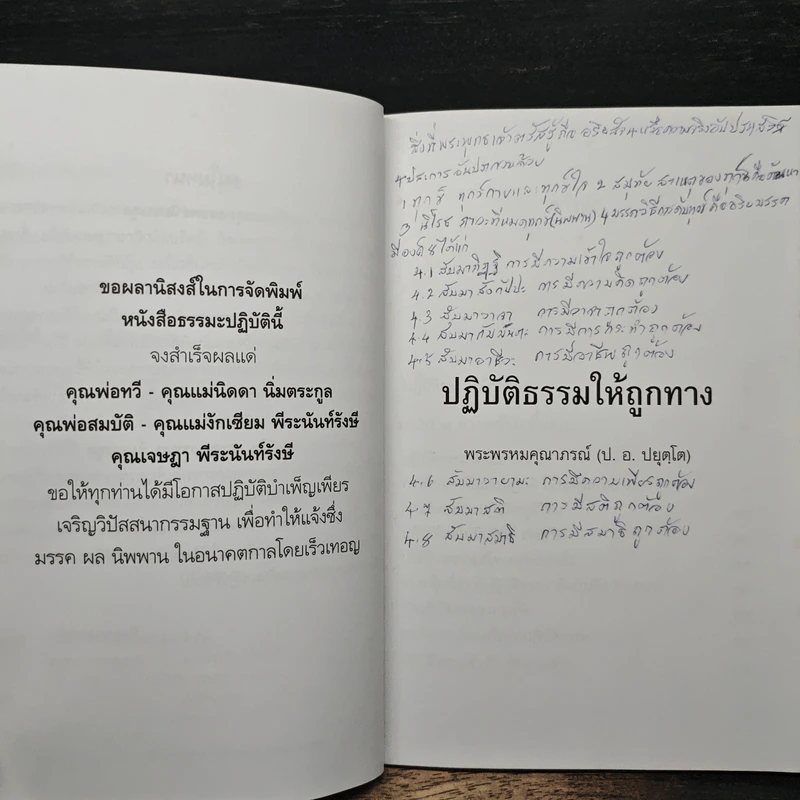 ขอผลานิสงส์ในการจัดพิมพ์
หนังสือธรรมะปฏิบัตินี้
จงสำเร็จผลแด่
คุณพ่อทวี - คุณแม่นิดดา นิ่มตระกูล
คุณพ่อสมบัติ - คุณแม่งักเซียม พีระนันท์รังษี
คุณเจษฎา พีระนันท์รังษี
ขอให้ทุกท่านได้มีโอกาสปฏิบัติบำเพ็ญเพียร
เจริญวิปัสสนากรรมฐาน เพื่อทำให้แจ้งซึ่ง
มรรค ผล นิพพาน ในอนาคตกาลโดยเร็วเทอญ
สิ่งที่พระพุทธเจ้าตรัสรู้คือ อริยสัจ 4 หรือความจริงอันประเสริฐ
4 ประการ อันประกอบด้วย
1 ทุกข์ ทุกข์กายและทุกข์ใจ 2 สมุทัย สาเหตุของทุกข์คือตัณหา
3 นิโรธ ภาวะที่หมดทุกข์(นิพพาน) 4 มรรควิธีการดับทุกข์ คืออริยมรรค
มีองค์ 8 ได้แก่
4.1 สัมมาทิฏฐิ การมีความเข้าใจถูกต้อง
4.2 สัมมาสังกัปปะ การมีความคิดถูกต้อง
4.3 สัมมาวาจา การมีวาจาถูกต้อง
4.4 สัมมากัมมันตะ การมีการกระทำถูกต้อง
4.5 สัมมาอาชีวะ การมีอาชีพถูกต้อง
ปฏิบัติธรรมให้ถูกทาง
พระพรหมคุณาภรณ์ (ป. อ. ปยุตฺโต)
4.6 สัมมาวายามะ การมีความเพียรถูกต้อง
4.7 สัมมาสติ การมีสติถูกต้อง
4.8 สัมมาสมาธิ การมีสมาธิถูกต้อง